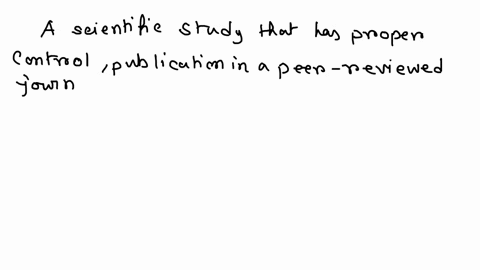 A scientific study that has proper
control, publication in a peer-reviewed
journ